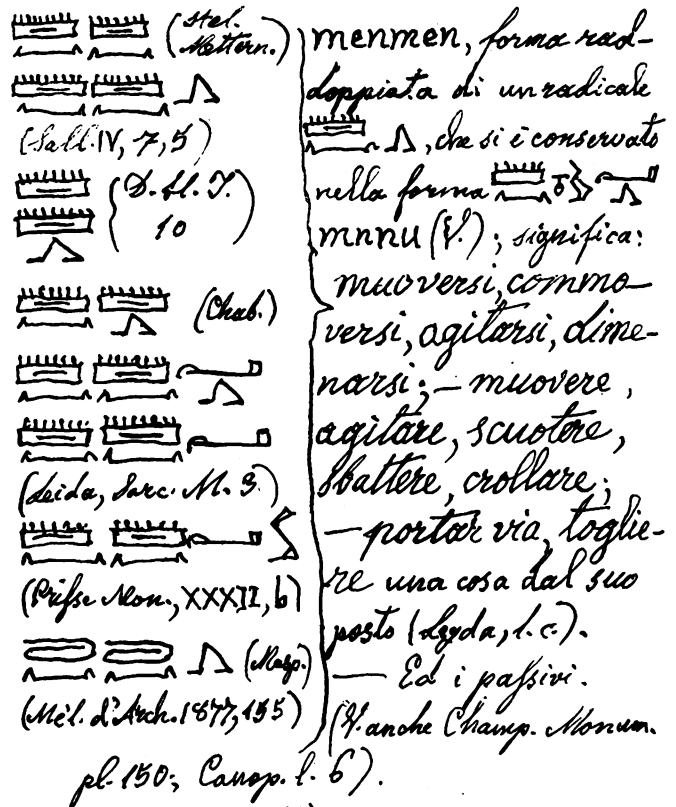 𓏠𓈖𓏠𓈖 (Stel.
Mettern.)
𓏠𓈖𓏠𓈖𓂻
(Sall. IV, 7, 5)
𓏠𓈖
𓏠𓈖
𓂻
(D. H. I.
10)
𓏠𓈖𓏠𓈖𓂻 (Chab.)
𓏠𓈖𓏠𓈖𓂡𓂻
𓏠𓈖𓏠𓈖𓂡
(Leida, Sarc. M. 3.)
𓏠𓈖𓏠𓈖𓂡
(Prisse Mon., XXXII, b)
𓂻 (Masp.)
(Mél. d'Arch. 1877, 155)
menmen, forma rad-
doppiata di un radicale
𓏠𓈖𓂻, che si è conservato
nella forma 𓏠𓈖𓏌𓂡𓂻
mnnu (V.); significa:
muoversi, commo-
versi, agitarsi, dime-
narsi; — muovere,
agitare, scuotere,
sbattere, crollare;
— portar via, toglie-
re una cosa dal suo
posto (Leyda, l. c.).
— Ed i passivi.
(V. anche Champ. Monum.
pl. 150; Canop. l. 6).